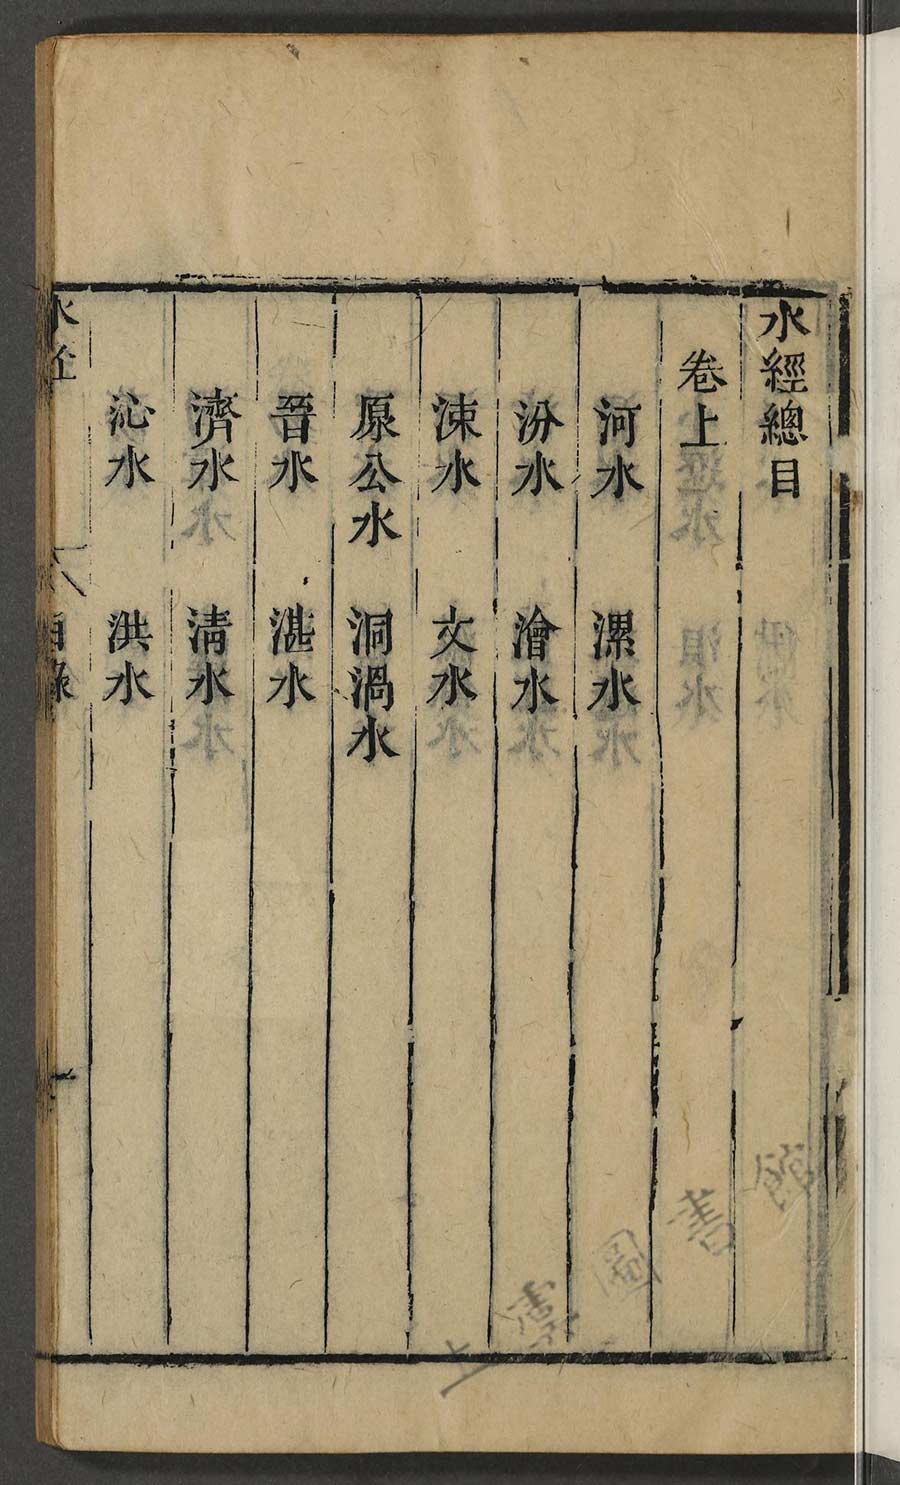 水經總目
卷上
河水 漯水
汾水 澮水
涑水 文水
原公水 洞渦水
晉水 湛水
濟水 清水
沁水 洪水
水
目錄
一
上
圖書館